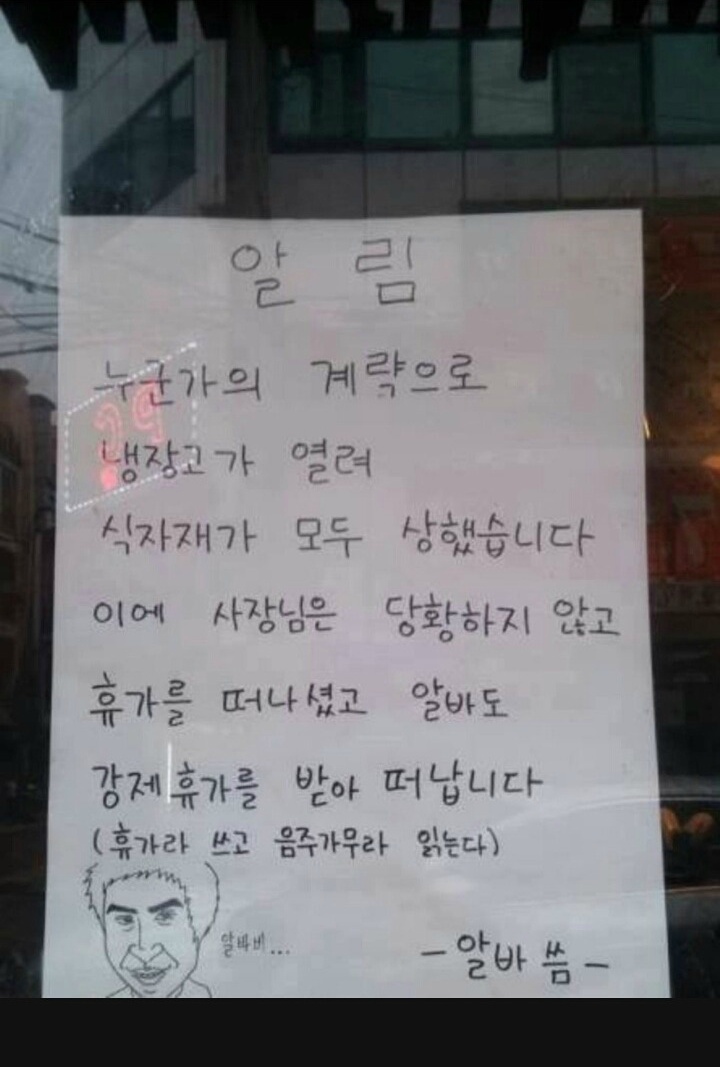 알 림
누군가의 계략으로
냉장고가 열려
식자재가 모두 상했습니다
이에 사장님은 당황하지 않고
휴가를 떠나셨고 알바도
강제휴가를 받아 떠납니다
(휴가라 쓰고 음주가무라 읽는다)
알바비...
- 알바 씀 -